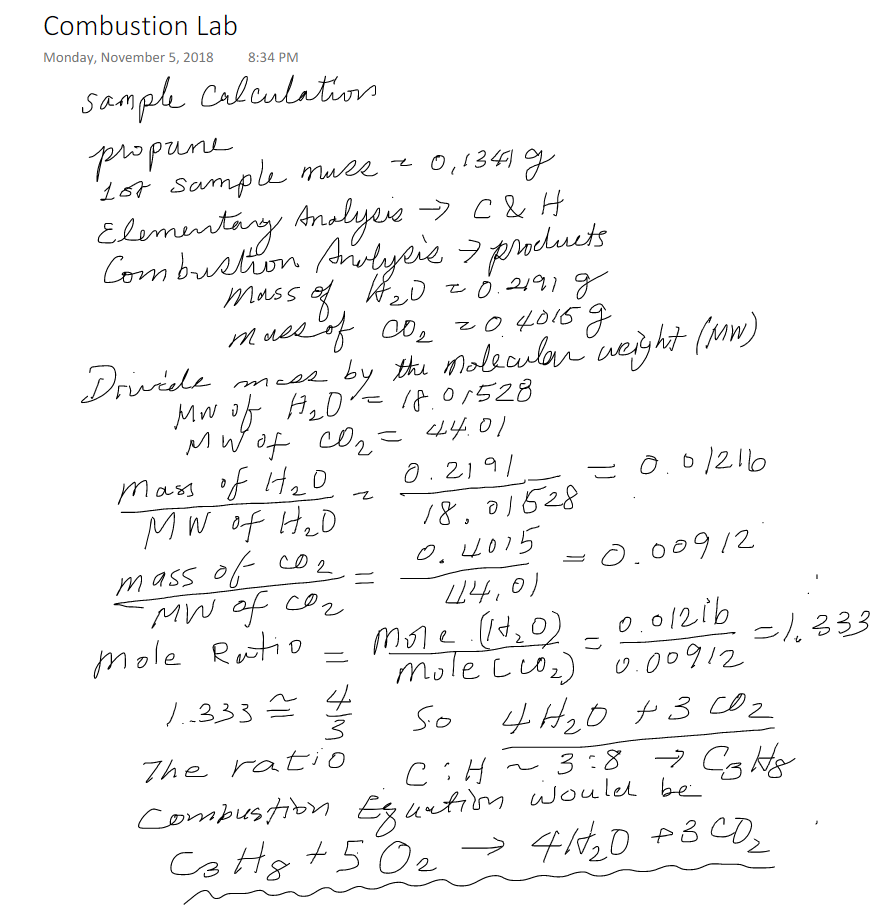 Combustion Lab
Monday, November 5, 2018 8:34 PM
sample Calculation
propane
1st sample mass = 0.1341 g
Elementary Analysis → C & H
Combustion Analysis → products
Mass of H₂O = 0.2191 g
mass of CO₂ = 0.4015 g
Divide mass by the Molecular weight (MW)
MW of H₂O = 18.01528
MW of CO₂ = 44.01
mass of H₂O / MW of H₂O = 0.2191 / 18.01528 = 0.01216
mass of CO₂ / MW of CO₂ = 0.4015 / 44.01 = 0.00912
Mole Ratio = Mole (H₂O) / Mole (CO₂) = 0.01216 / 0.00912 = 1.333
1.333 ≅ 4/3 So 4 H₂O + 3 CO₂
The ratio C:H ~ 3:8 → C₃H₈
Combustion Equation would be
C₃H₈ + 5 O₂ → 4 H₂O + 3 CO₂